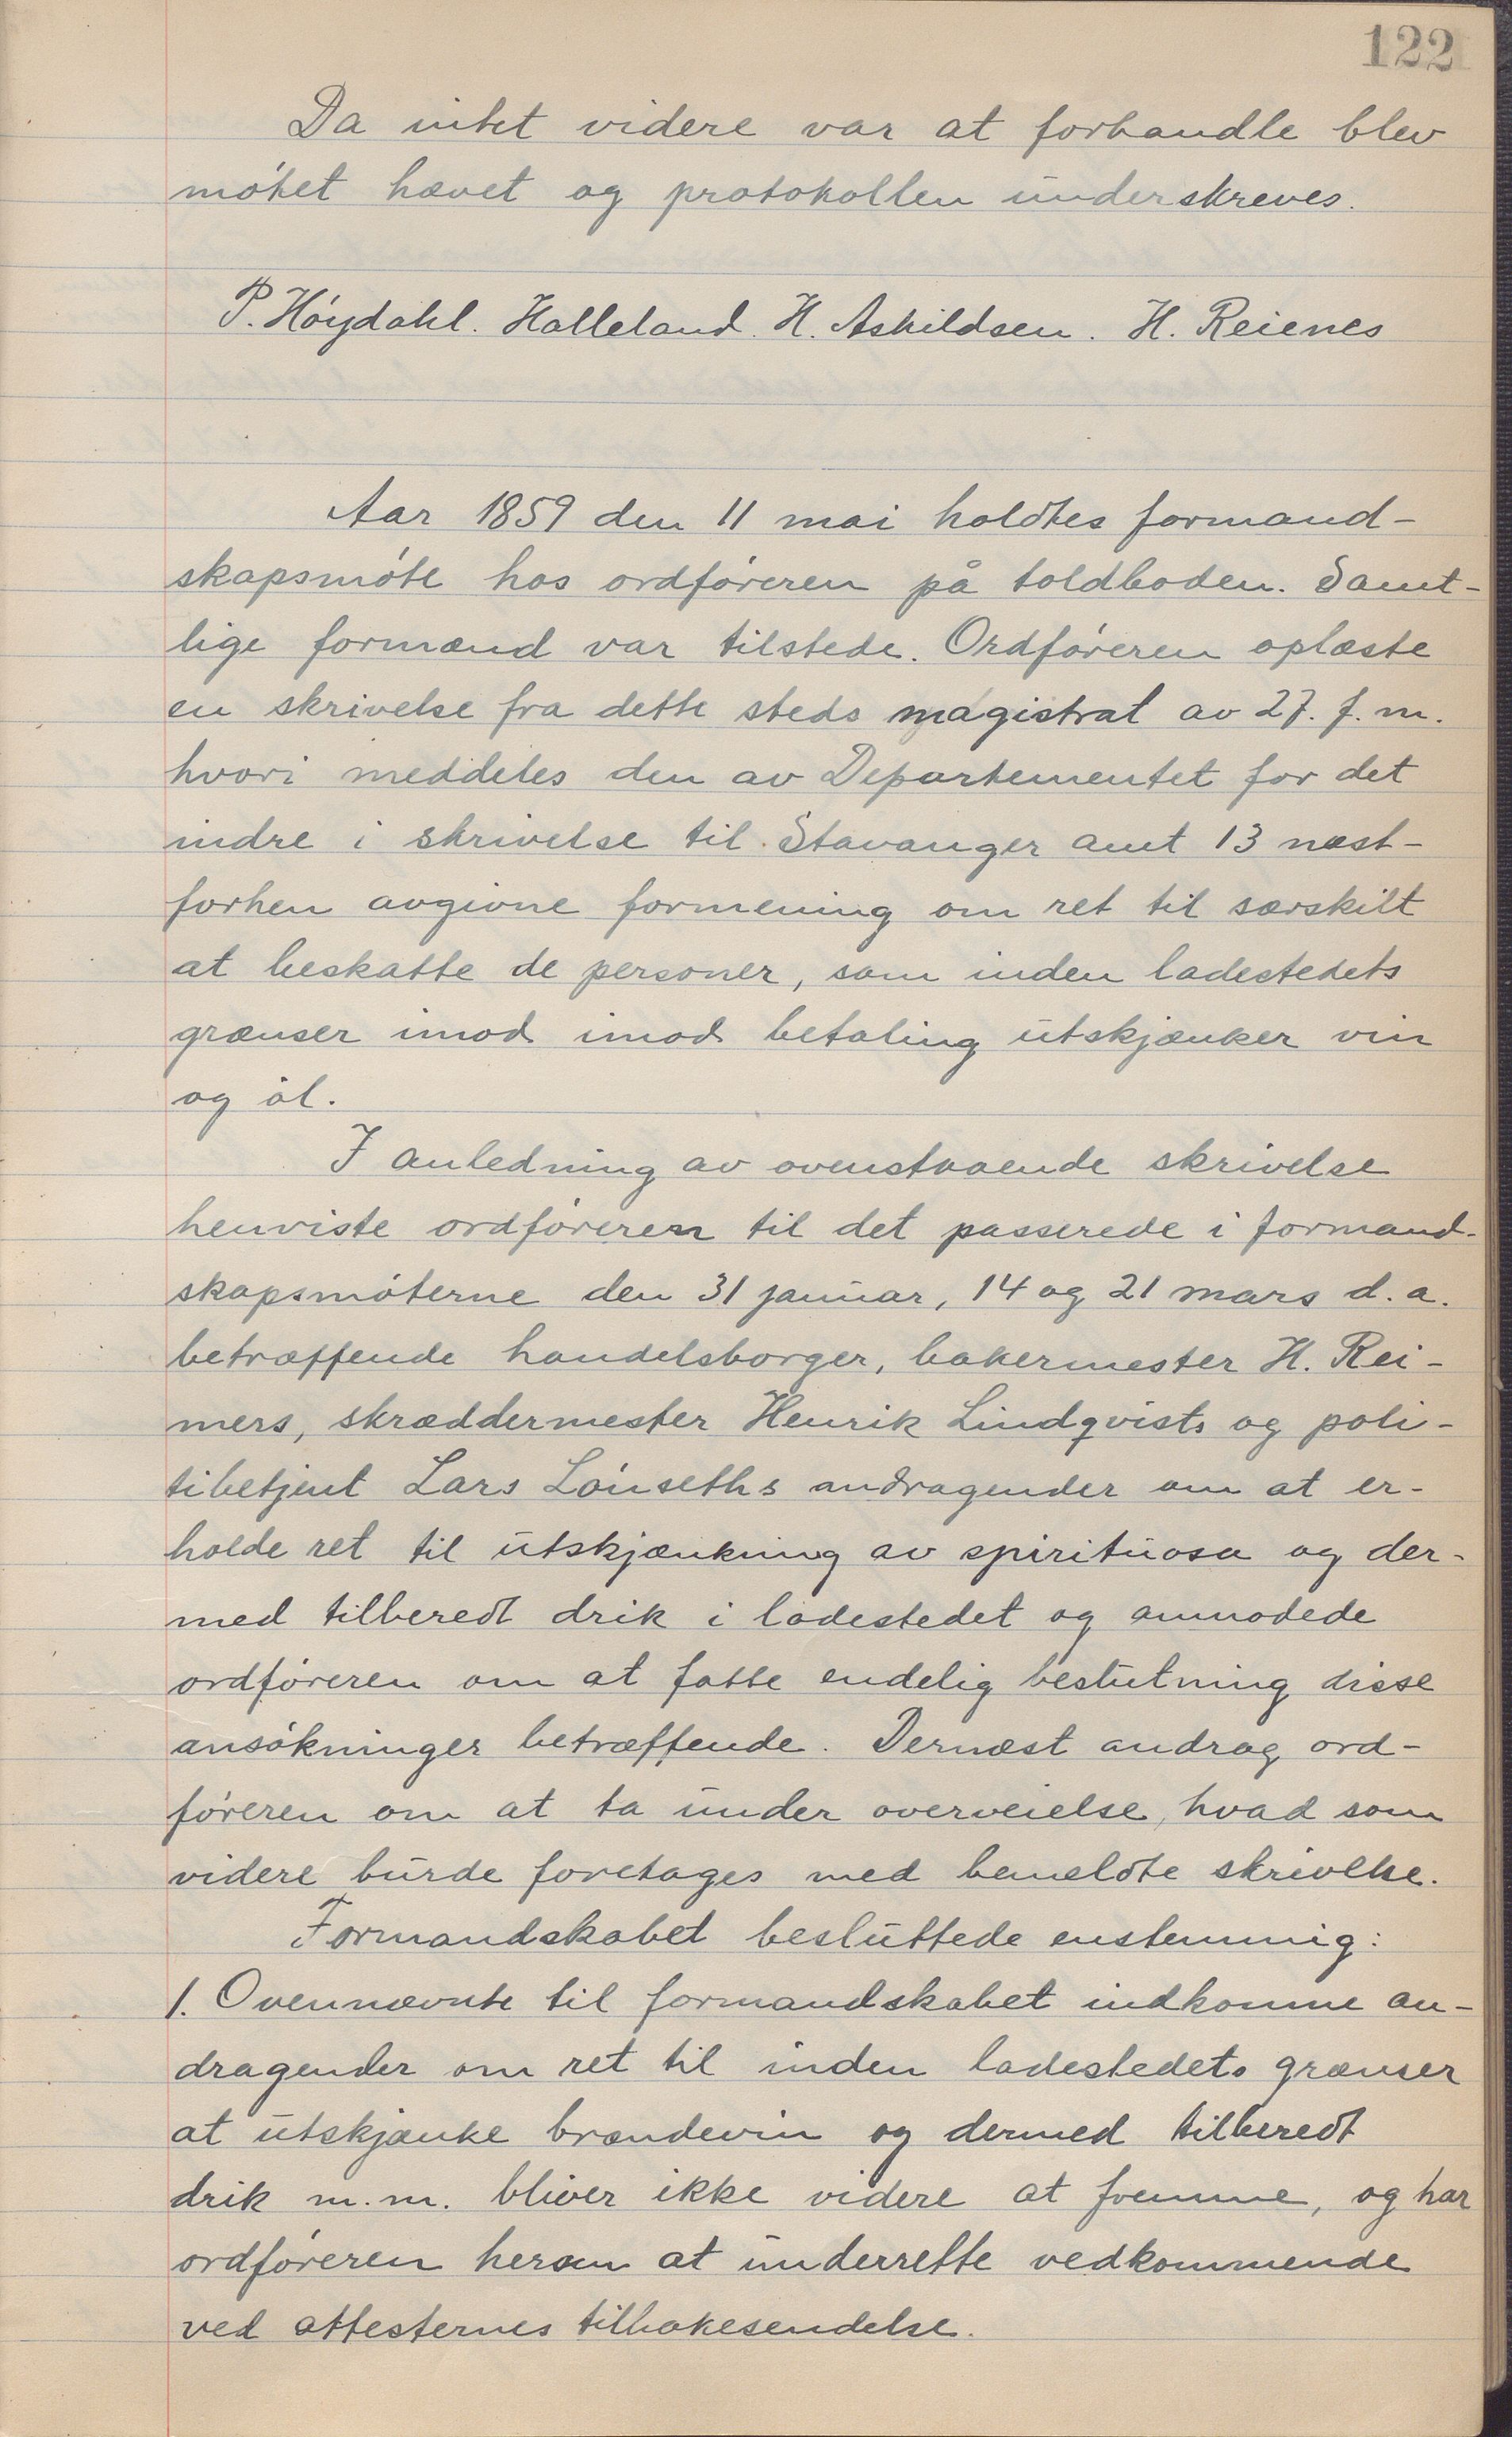 122
Da intet videre var at forhandle blev
møtet hævet og protokollen underskreves.
P. Høydahl. Halleland. H. Askildsen. H. Reienes
Aar 1859 den 11 mai holdtes formand-
skapsmøte hos ordføreren på toldboden. Samt-
lige formænd var tilstede. Ordføreren oplæste
en skrivelse fra dette steds magistrat av 27. f. m.
hvori meddeles den av Departementet for det
indre i skrivelse til Stavanger amt 13 næst-
forhen avgivne formening om ret til særskilt
at beskatte de personer, som inden ladestedets
grænser imod imod betaling utskjænker vin
og øl.
I anledning av ovenstaaende skrivelse
henviste ordføreren til det passerede i formand-
skapsmøterne den 31 januar, 14 og 21 mars d. a.
betræffende handelsborger, bakermester H. Rei-
mers, skræddermester Henrik Lindqvists og poli-
tibetjent Lars Lønseths andragender om at er-
holde ret til utskjænkning av spirituosa og der-
med tilberedt drik i ladestedet og anmodede
ordføreren om at fatte endelig beslutning disse
ansøkninger betræffende. Dernæst androg ord-
føreren om at ta under overveielse, hvad som
videre burde foretages med bemeldte skrivelse.
Formandskabet besluttede enstemmig:
1. Ovennævnte til formandskabet indkomne an-
dragender om ret til inden ladestedets grænser
at utskjænke brændevin og dermed tilberedt
drik m.m. bliver ikke videre at fremme, og har
ordføreren herom at underrette vedkommende
ved attesternes tilbakesendelse.